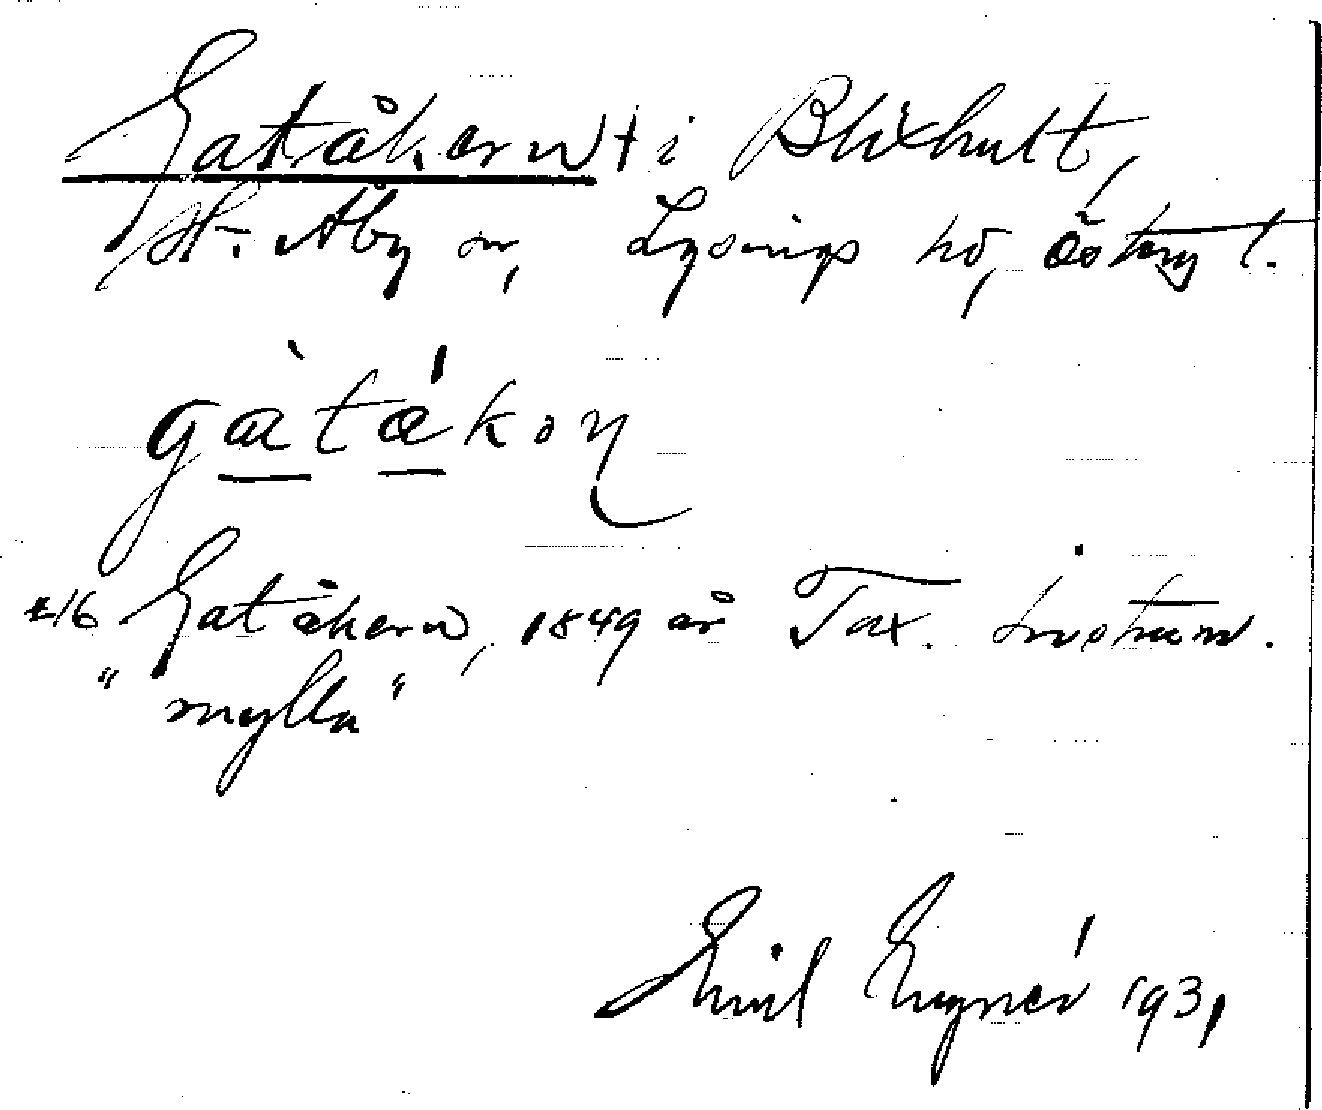 Gatåkern + i Blixhult,
St. Åby sn, Lysings hd, Östergötl.
gàtákon
£16 Gatåkern, 1849 år Tax. Instrum.
"mylla"
Emil 1931